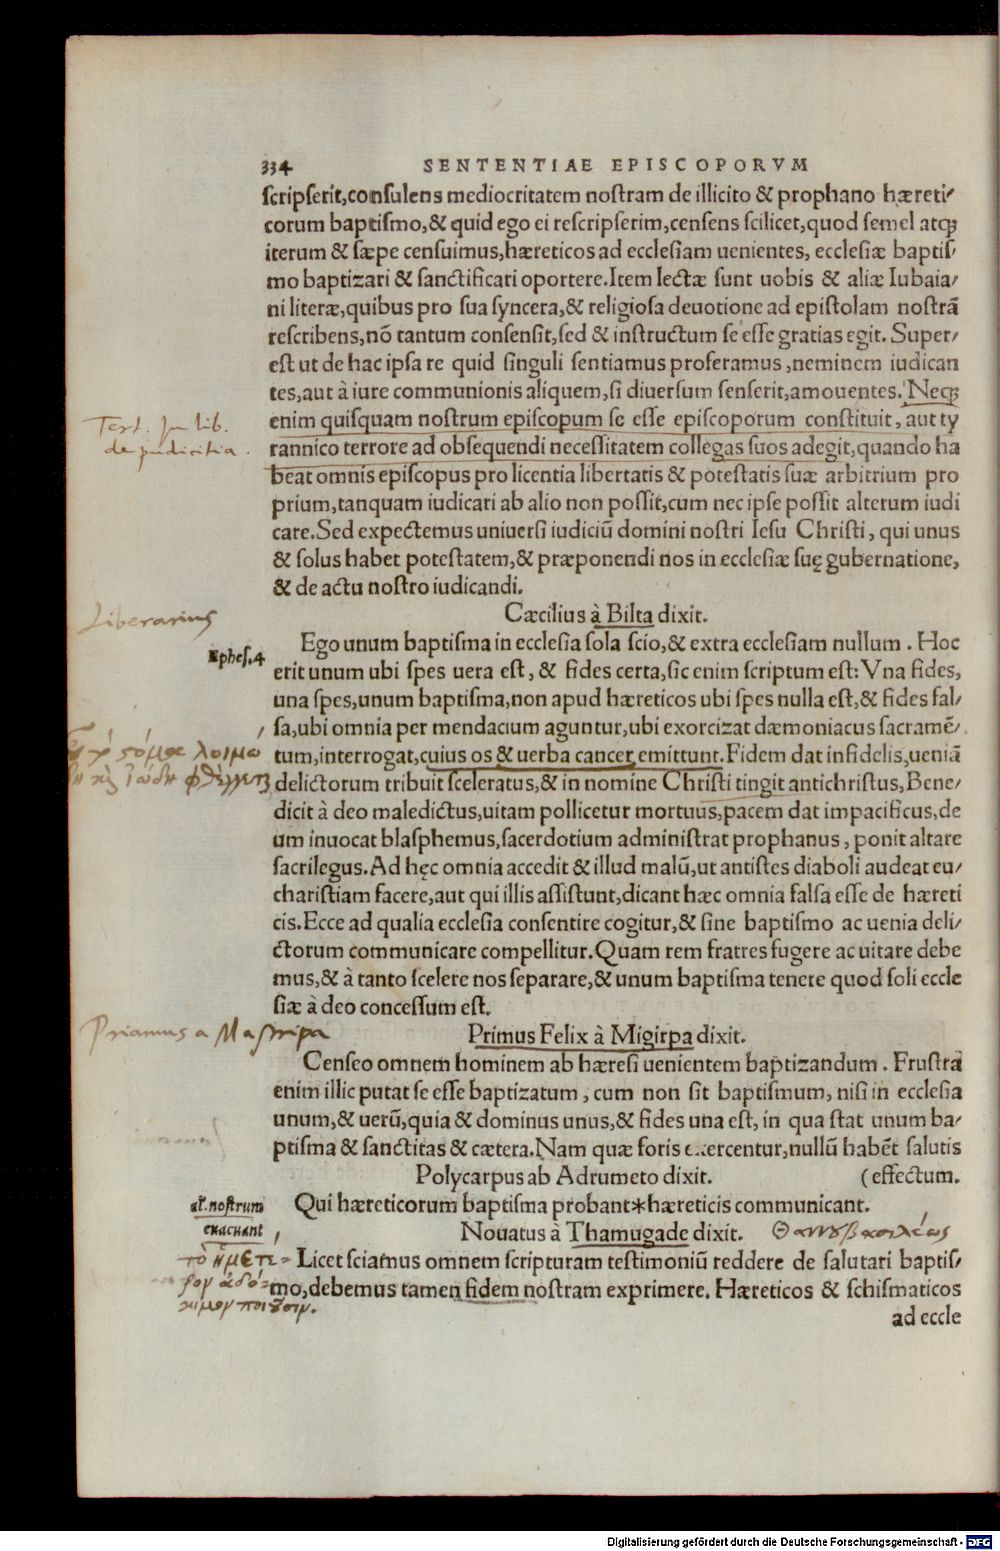 334 SENTENTIAE EPISCOPORVM
scripserit,consulens mediocritatem nostram de illicito & prophano hæreti-
corum baptismo,& quid ego ei rescripserim,censens scilicet,quod semel atq;
iterum & sæpe censuimus,hæreticos ad ecclesiam uenientes, ecclesiæ baptis-
mo baptizari & sanctificari oportere.Item lectæ sunt uobis & aliæ Iubaia-
ni literæ,quibus pro sua syncera,& religiosa deuotione ad epistolam nostrā
rescribens,nō tantum consensit,sed & instructum se esse gratias egit. Super-
est ut de hac ipsa re quid singuli sentiamus proferamus ,neminem iudican
tes,aut à iure communionis aliquem,si diuersum senserit,amouentes. Neq;
Tert. in lib.
enim quisquam nostrum episcopum se esse episcoporum constituit, aut ty
de pudicitia.
rannico terrore ad obsequendi necessitatem collegas suos adegit,quando ha
beat omnis episcopus pro licentia libertatis & potestatis suæ arbitrium pro
prium,tanquam iudicari ab alio non possit,cum nec ipse possit alterum iudi
care.Sed expectemus uniuersi iudiciū domini nostri Iesu Christi, qui unus
& solus habet potestatem,& præponendi nos in ecclesiæ suę gubernatione,
& de actu nostro iudicandi.
Cæcilius à Bilta dixit.
Liberarius
Ego unum baptisma in ecclesia sola scio,& extra ecclesiam nullum . Hoc
Ephes.4
erit unum ubi spes uera est, & fides certa,sic enim scriptum est: Vna fides,
una spes,unum baptisma,non apud hæreticos ubi spes nulla est,& fides fal-
sa,ubi omnia per mendacium aguntur,ubi exorcizat dæmoniacus sacramē-
tum,interrogat,cuius os & uerba cancer emittunt.Fidem dat infidelis,ueniā
delictorum tribuit sceleratus,& in nomine Christi tingit antichristus,Bene-
dicit à deo maledictus,uitam pollicetur mortuus,pacem dat impacificus,de
um inuocat blasphemus,sacerdotium administrat prophanus, ponit altare
sacrilegus.Ad hęc omnia accedit & illud malū,ut antistes diaboli audeat eu-
charistiam facere,aut qui illis assistunt,dicant hæc omnia falsa esse de hæreti
cis.Ecce ad qualia ecclesia consentire cogitur,& sine baptismo ac uenia deli-
ctorum communicare compellitur.Quam rem fratres fugere ac uitare debe
mus,& à tanto scelere nos separare,& unum baptisma tenere quod soli eccle
siæ à deo concessum est.
Priamus a Mastripa
Primus Felix à Migirpa dixit.
Censeo omnem hominem ab hæresi uenientem baptizandum . Frustra
enim illic putat se esse baptizatum, cum non sit baptismum, nisi in ecclesia
unum,& uerū,quia & dominus unus,& fides una est, in qua stat unum ba-
ptisma & sanctitas & cætera.Nam quæ foris exercentur,nullū habēt salutis
Polycarpus ab Adrumeto dixit. (effectum.
al'.nostrum
Qui hæreticorum baptisma probant*hæreticis communicant.
euacuant
Nouatus à Thamugade dixit.
τὸ ἡμέτε-
Licet sciamus omnem scripturam testimoniū reddere de salutari baptis-
ρον ἀδό-
mo,debemus tamen fidem nostram exprimere. Hæreticos & schismaticos
κιμον ποιοῦσιν.
ad eccle
Digitalisierung gefördert durch die Deutsche Forschungsgemeinschaft - DFG